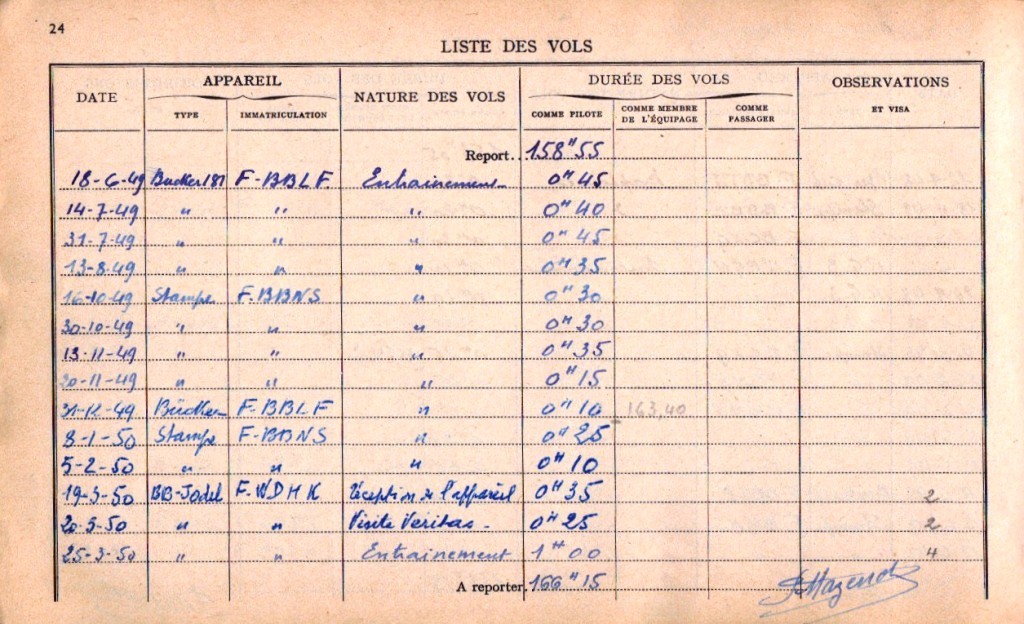 24
LISTE DES VOLS
DATE APPAREIL NATURE DES VOLS DURÉE DES VOLS OBSERVATIONS ET VISA
TYPE IMMATRICULATION COMME PILOTE COMME MEMBRE DE L'ÉQUIPAGE COMME PASSAGER
Report.. 158H55
18-6-49 Bucker 181 F-BBLF Entrainement 0H45
14-7-49 " " " 0H40
31-7-49 " " " 0H45
13-8-49 " " " 0H35
16-10-49 Stampe F.BBNS " 0H30
30-10-49 " " " 0H30
13-11-49 " " " 0H35
20-11-49 " " " 0H15
31-12-49 Bücker F-BBLF " 0H10 163,40
8-1-50 Stampe F-BBNS " 0H25
5-2-50 " " " 0H10
19-3-50 BB-Jodel F.WDHK Réception de l'appareil 0H35 2
20-3-50 " " Visite Veritas - 0H25 2
25-3-50 " " Entrainement 1H00 4
A reporter. 166H15